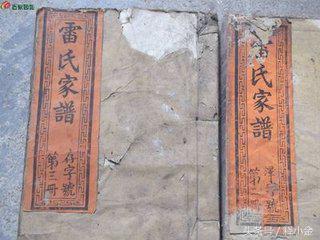 百家姓氏
雷氏家譜
存字號
第三冊
雷氏家譜
洋字號
第一
头条号/程小金